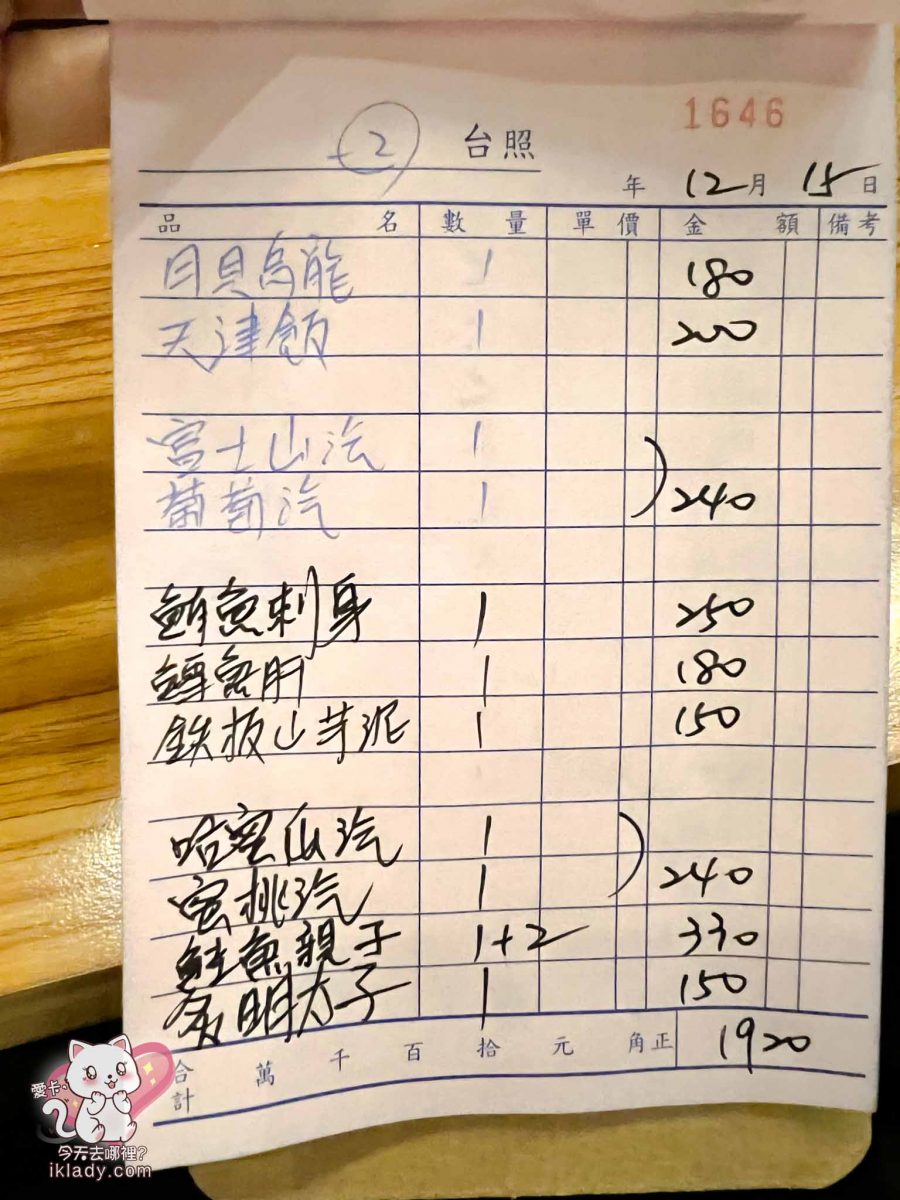 1646
2 台照
年 12月 15日
品名 數量 單價 金額 備考
月見烏龍 1 180
天津飯 1 200
富士山汽 1
葡萄汽 1 240
鮪魚刺身 1 250
鱈魚肝 1 180
鉄板山芋泥 1 150
哈密山汽 1
蜜桃汽 1 240
鮭魚親子 1+2 330
炙明太子 1 150
合計 萬 千 百 拾 元 角正 1920
愛卡
今天去哪裡?
iklady.com